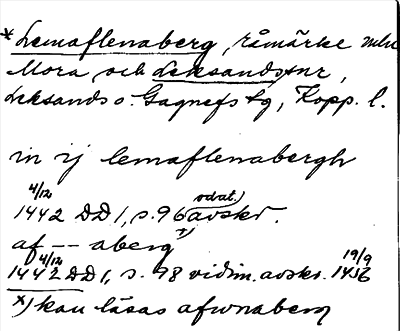 *Lemaflenaberg, råmärke mln
Mora och Leksands tnr,
Leksands o. Gagnefs tg, Kopp. l.
in ij lemaflenabergh
4/12 1442 DD 1, s. 96 odat. avskr.
af -- aberg x)
4/12 1442 DD 1, s. 98 vidim. avskr. 19/9 1416
x) kan läsas afwnaberg